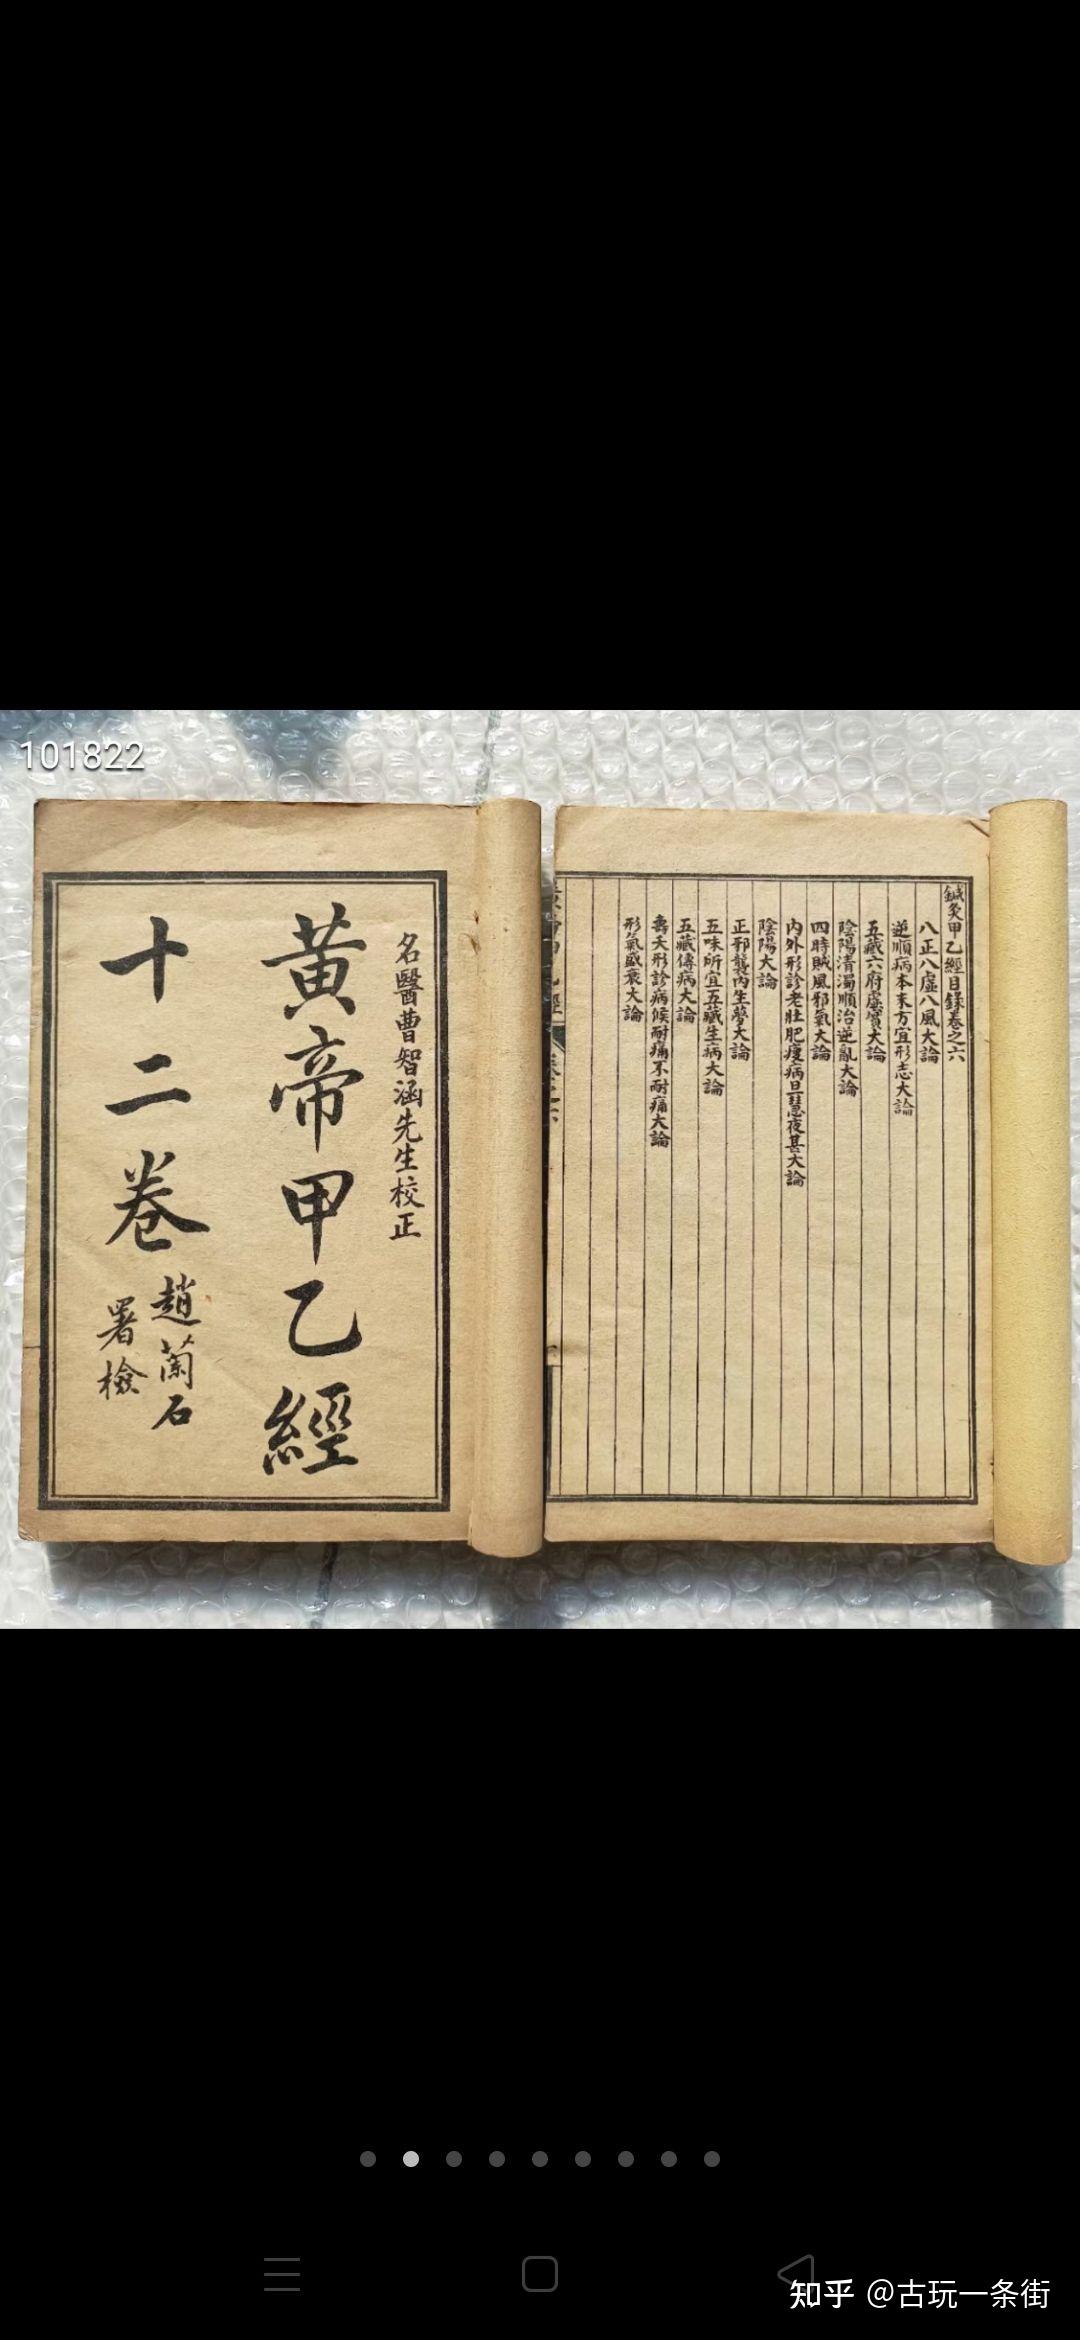 101822
名醫曹智涵先生校正
黃帝甲乙經
十二卷
趙蘭石
署檢
鍼灸甲乙經目錄卷之六
八正八虛八風大論
逆順病本末方宜形志大論
五藏六府虛實大論
陰陽清濁順治逆亂大論
四時賊風邪氣大論
內外形診老壯肥瘦病旦慧夜甚大論
陰陽大論
正邪襲內生夢大論
五味所宜五藏生病大論
五藏傳病大論
壽夭形診病候耐痛不耐痛大論
形氣盛衰大論
知乎 @古玩一条街